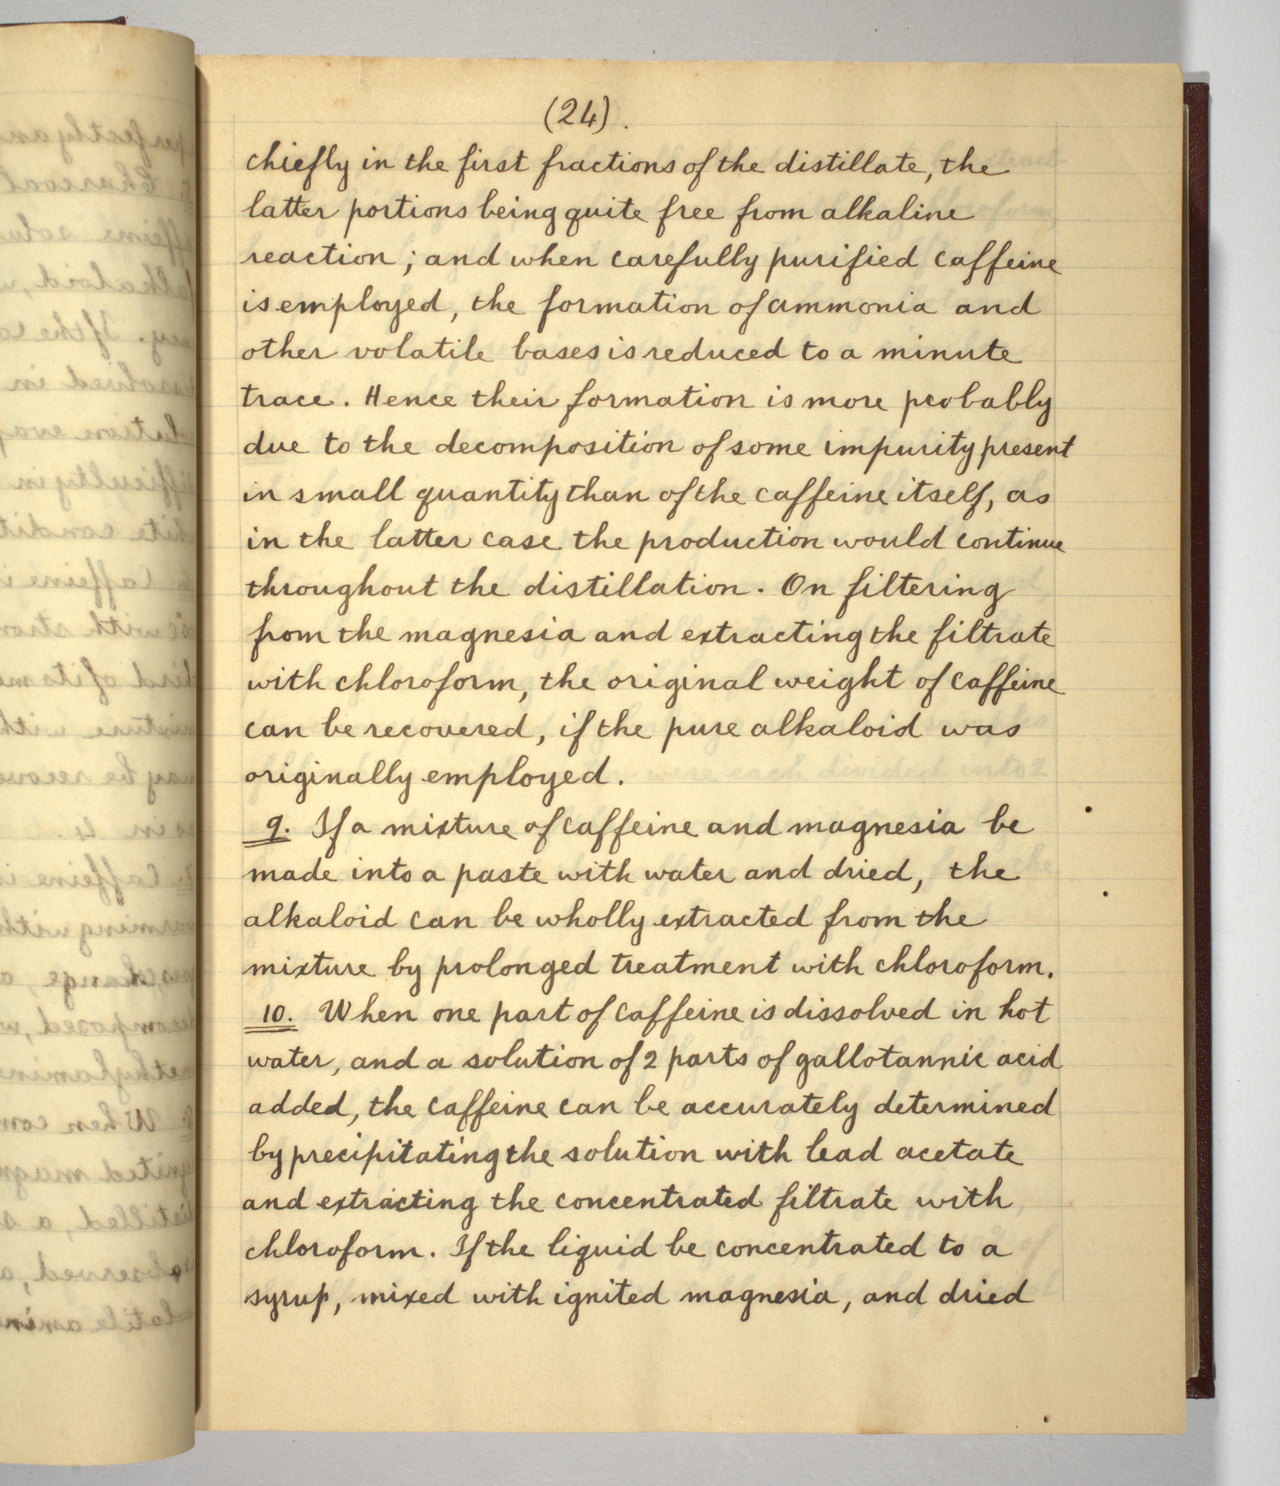 (24).
chiefly in the first fractions of the distillate, the
latter portions being quite free from alkaline
reaction; and when carefully purified caffeine
is employed, the formation of ammonia and
other volatile bases is reduced to a minute
trace. Hence their formation is more probably
due to the decomposition of some impurity present
in small quantity than of the caffeine itself, as
in the latter case the production would continue
throughout the distillation. On filtering
from the magnesia and extracting the filtrate
with chloroform, the original weight of caffeine
can be recovered, if the pure alkaloid was
originally employed.
9. If a mixture of caffeine and magnesia be
made into a paste with water and dried, the
alkaloid can be wholly extracted from the
mixture by prolonged treatment with chloroform.
10. When one part of caffeine is dissolved in hot
water, and a solution of 2 parts of gallotannic acid
added, the caffeine can be accurately determined
by precipitating the solution with lead acetate
and extracting the concentrated filtrate with
chloroform. If the liquid be concentrated to a
syrup, mixed with ignited magnesia, and dried